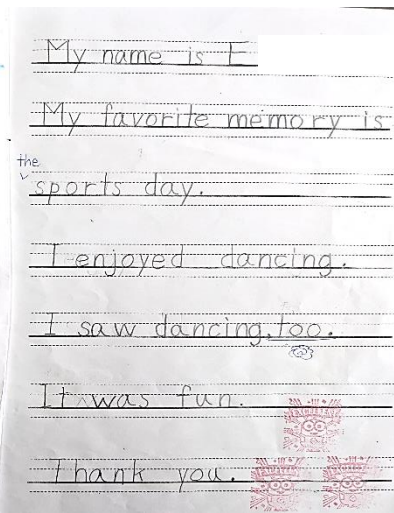 My name is E
My favorite memory is
the
sports day.
I enjoyed dancing.
I saw dancing, too.
It was fun.
Thank you.